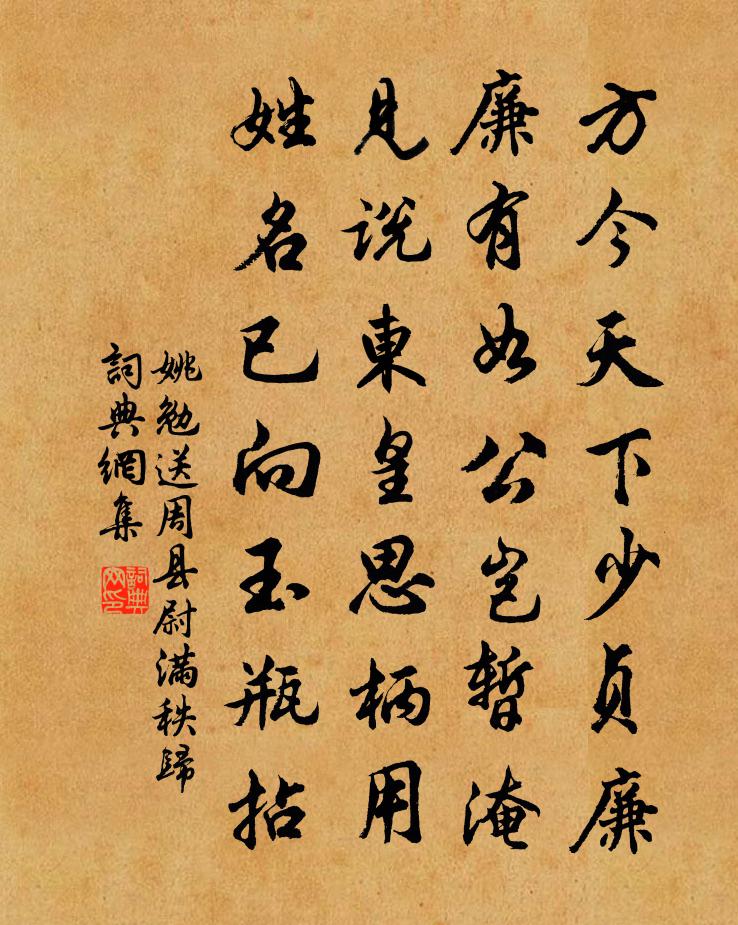 方今天下少貞廉
廉有如公豈暫淹
見説東皇思柄用
姓名已向玉瓶拈
姚勉送周县尉满秩歸
詞典網集
詞典网印